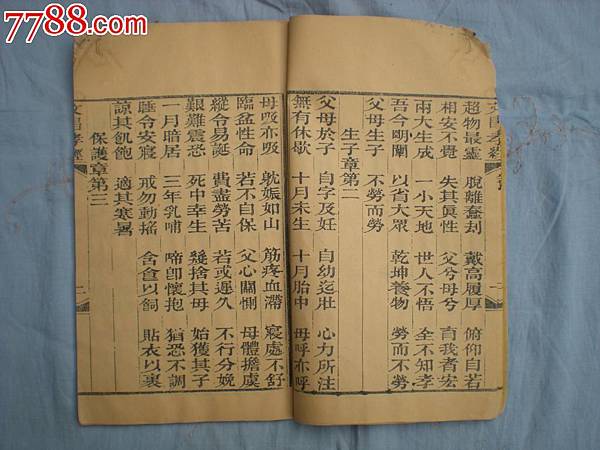 7788.com
文昌孝經
超物最靈 脫離蠢刦 戴高履厚 俯仰自若
相安不覺 失其眞性 父兮母兮 育我者宏
兩大生成 一小天地 世人不悟 全不知孝
吾今明闡 以省大眾 乾坤養物 勞而不勞
父母生子 不勞而勞
生子章第二
父母於子 自字及妊 自幼迄壯 心力所注
無有休歇 十月未生 十月胎中 母呼亦呼
母吸亦吸 躭娠如山 筋疼血滯 寢處不舒
臨盆性命 若不自保 父心關惻 母體擔虞
縱令易誕 費盡勞苦 若或遲久 不行分娩
艱難震恐 死中幸生 幾捨其母 始獲其子
一月暗居 三年乳哺 啼卽懷抱 猶恐不調
睡令安寢 戒勿動搖 含食以飼 貼衣以裹
諒其飢飽 適其寒暑
保護章第三
文昌孝經 二
7788.com